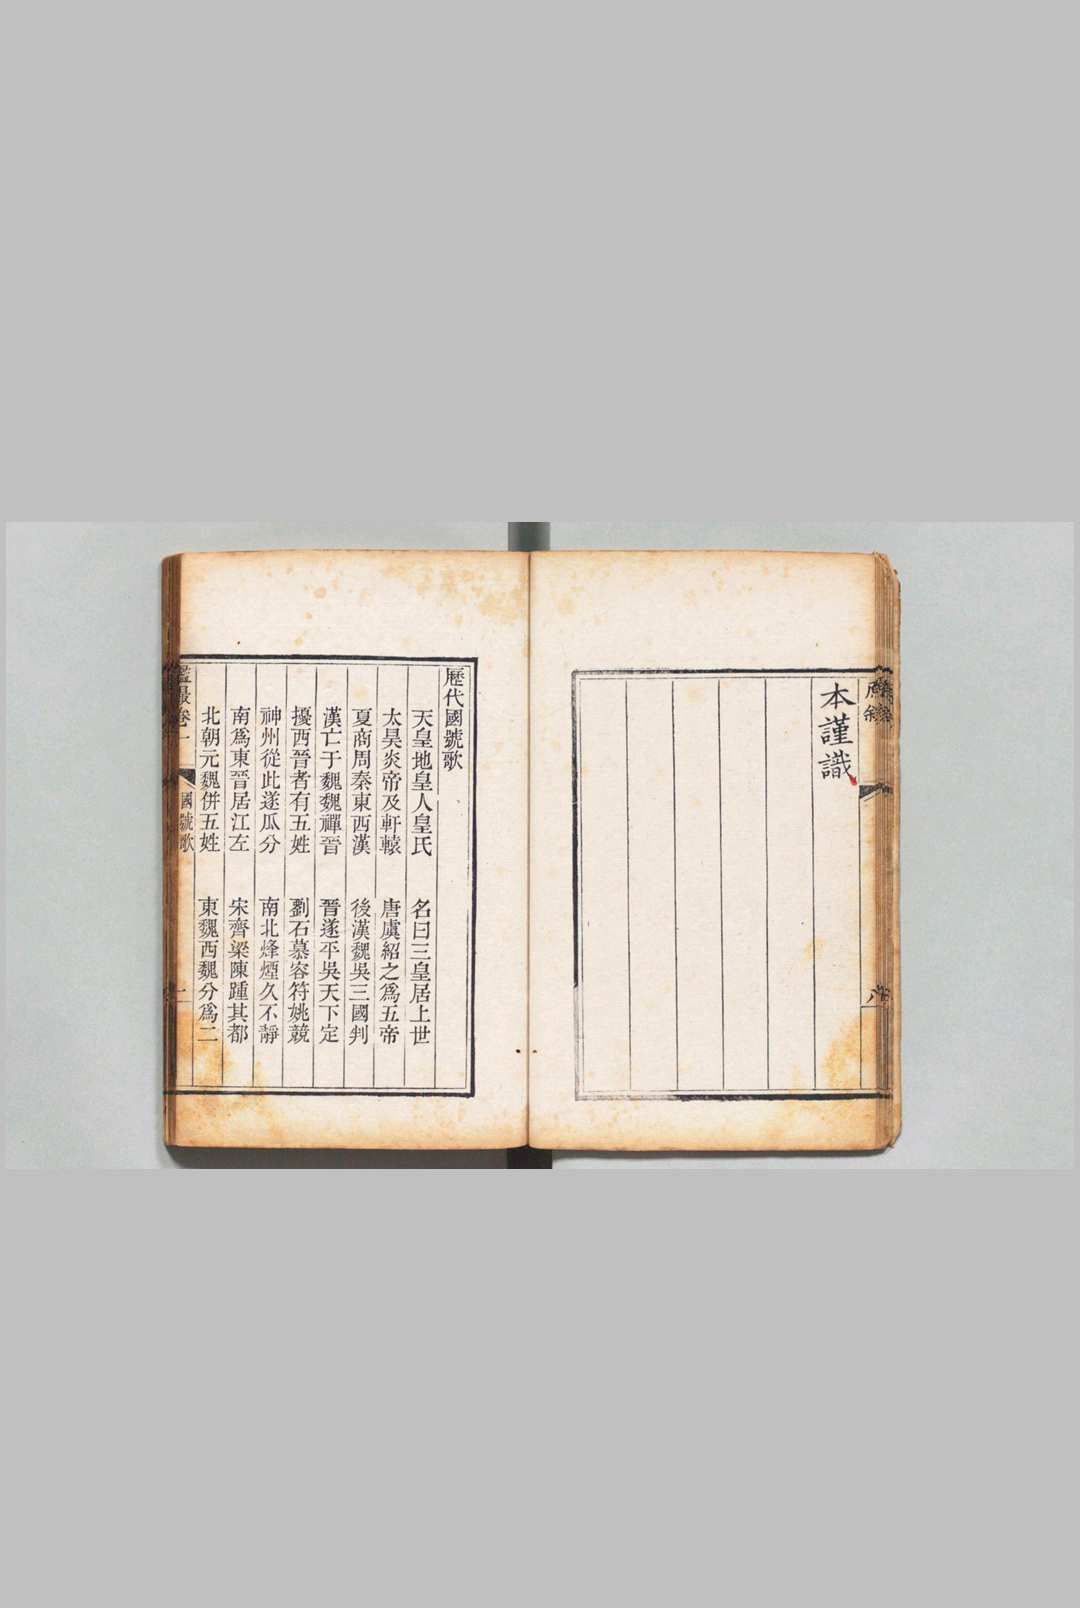 本謹識
原叙
八
歷代國號歌
天皇地皇人皇氏　名曰三皇居上世
太昊炎帝及軒轅　唐虞紹之爲五帝
夏商周秦東西漢　後漢魏吳三國判
漢亡于魏魏禪晉　晉遂平吳天下定
擾西晉者有五姓　劉石慕容符姚競
神州從此遂瓜分　南北烽煙久不靜
南爲東晉居江左　宋齊梁陳踵其都
北朝元魏併五姓　東魏西魏分爲二
鑑最卷一　國號歌　一